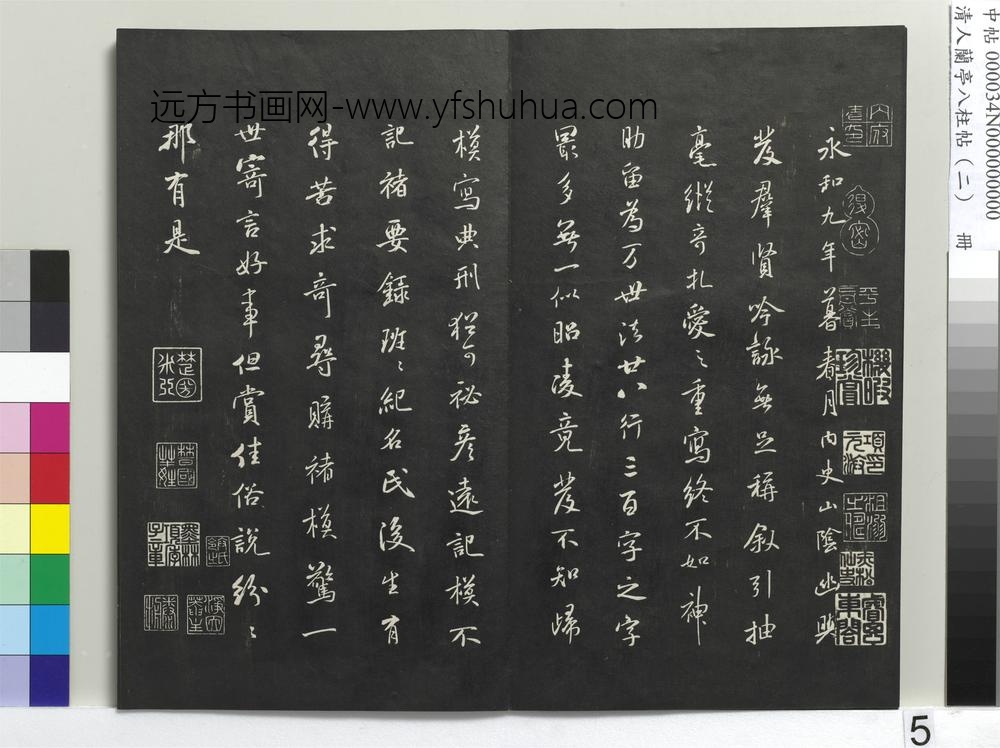 远方书画网-www.yfshuhua.com
永和九年暮春月内史山陰幽興
發羣賢吟詠無足稱叙引抽
毫縱奇札愛〻重寫終不如神
助留為万世法廿八行三百字之字
最多無一似昭陵竟發不知歸
模寫典刑猶可祕彥遠記模不
記褚要錄班〻紀名氏後生有
得苦求奇尋購褚模驚一
世寄言好事但賞佳俗說紛〻
那有是
中帖 000034N000000000
清人蘭亭八柱帖(二) 冊
5